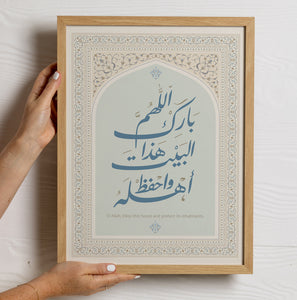 اللهم
بارك
هذا البيت
واحفظ
أهله
O Allah, bless this house and protect its inhabitants.